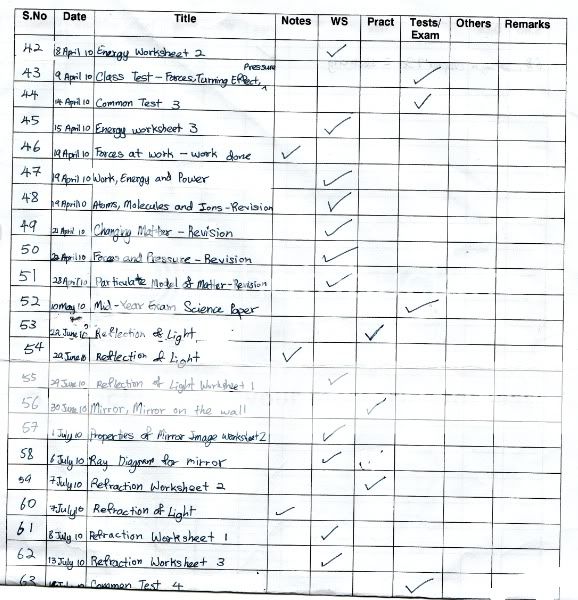 S.No Date Title Notes WS Pract Tests/ Exam Others Remarks
42 8 April 10 Energy Worksheet 2
43 9 April 10 Class Test - Forces, Turning Effect, Pressure
44 14 April 10 Common Test 3
45 15 April 10 Energy worksheet 3
46 19 April 10 Forces at work - work done
47 19 April 10 Work, Energy and Power
48 19 April 10 Atoms, Molecules and Ions - Revision
49 21 April 10 Changing Matter - Revision
50 22 April 10 Forces and Pressure - Revision
51 23 April 10 Particulate Model of Matter - Revision
52 10 May 10 Mid-Year Exam Science Paper
53 22 June 10 Reflection of Light
54 29 June 10 Reflection of Light
55 29 June 10 Reflection of Light Worksheet 1
56 30 June 10 Mirror, Mirror on the wall
57 1 July 10 Properties of Mirror Image Worksheet 2
58 6 July 10 Ray Diagram for mirror
59 7 July 10 Refraction Worksheet 2
60 7 July 10 Refraction of Light
61 8 July 10 Refraction Worksheet 1
62 13 July 10 Refraction Worksheet 3
63 July 10 Common Test 4